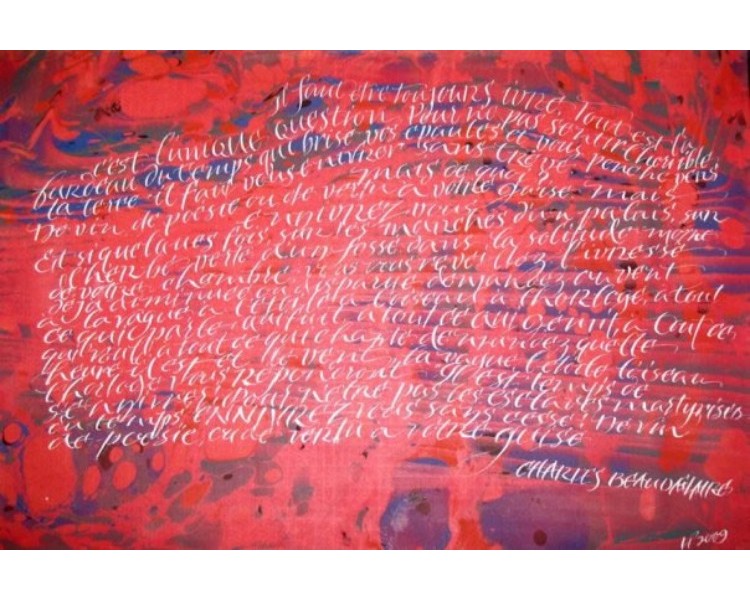 il faut être toujours ivre. Tout est là:
c'est l'unique question. Pour ne pas sentir l'horrible
fardeau du temps qui brise vos épaules et vous penche vers
la terre il faut vous enivrer sans trêve
mais de quoi?
De vin de poésie ou de vertu à votre guise. mais
enivrez-vous
Et si quelques fois, sur les marches d'un palais, sur
l'herbe verte d'un fossé dans la solitude morne
de votre chambre vous vous réveillez l'ivresse
déjà diminuée ou disparue demandez au vent
à la vague à l'étoile à l'oiseau à l'horloge, à tout
ce qui fuit à tout ce qui gémit à tout ce
qui roule à tout ce qui chante demandez quelle
heure il est et le vent la vague l'étoile l'oiseau
l'horloge Vous répondront Il est temps de
s'enivrer! Pour n'être pas les esclaves martyrisés
du temps, ENNIVREZ vous sans cesse! De vin
de poésie, ou de vertu à votre guise
CHARLES BEAUDELAIRE
2009